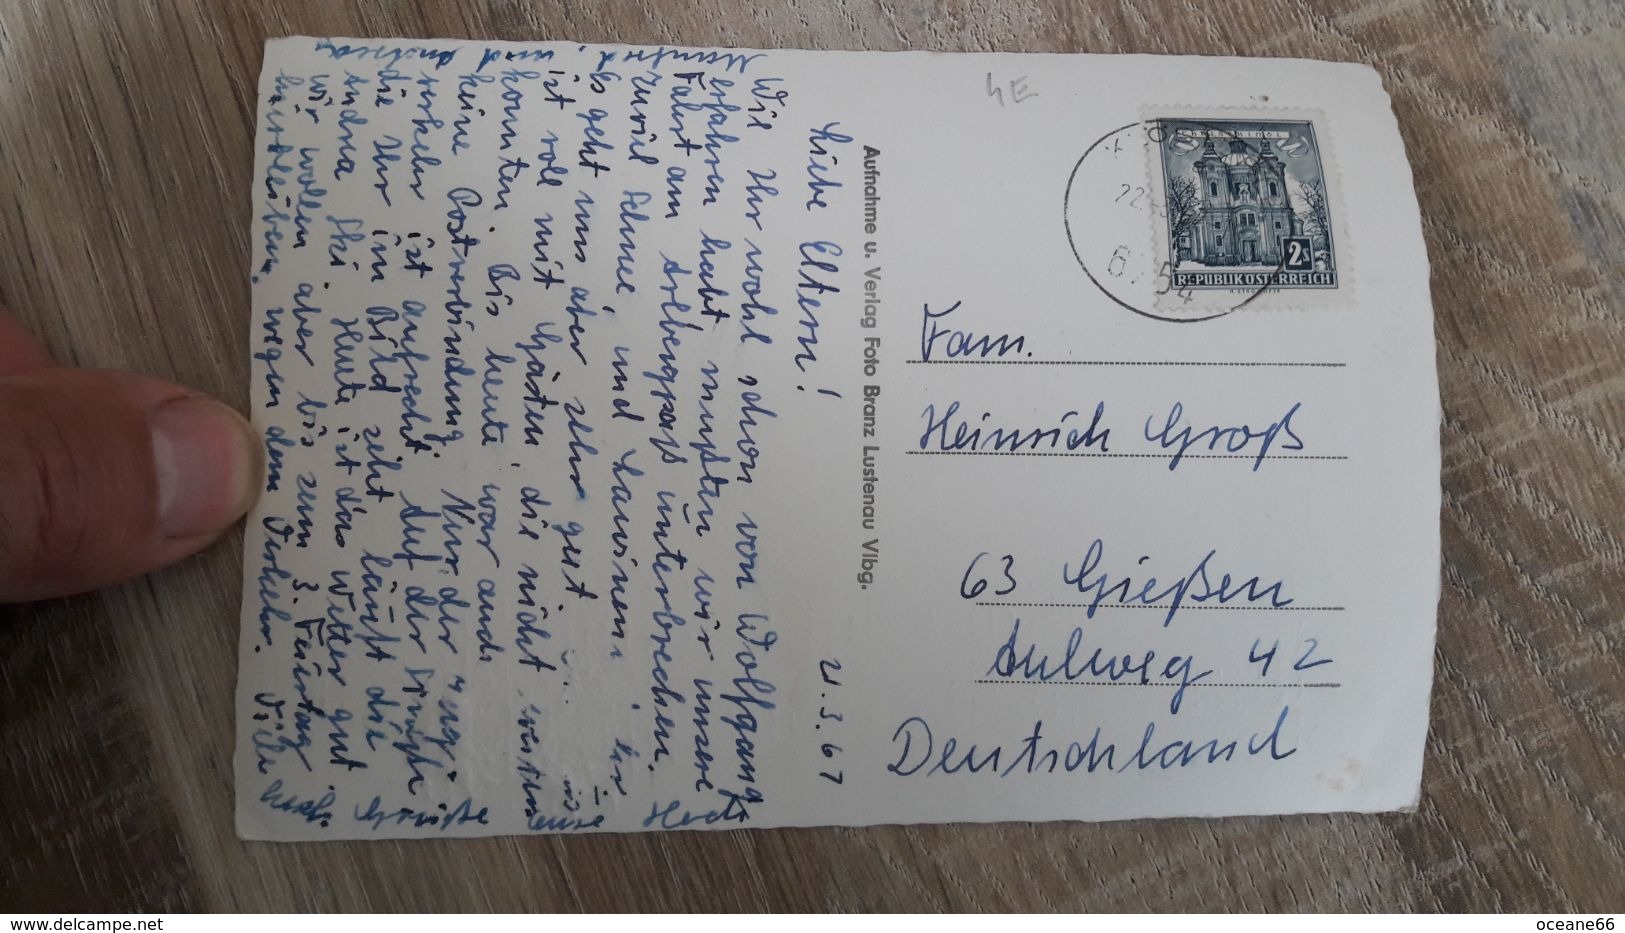 4E
REPUBLIK ÖSTERREICH
2s
22.
6754
Fam.
Heinrich Groß
63 Gießen
Aulweg 42
Deutschland
Aufnahme u. Verlag Foto Branz Lustenau Vlbg.
21.3.67
Liebe Eltern!
Wie Ihr wohl schon von Wolfgang
erfahren habt mußten wir unsere
Fahrt am Arlbergpass unterbrechen.
Zuviel Schnee, und Lawinen. Hier
Es geht uns aber sehr gut.
ist voll mit Gästen, die nicht
konnten. Bis heute war auch
keine Postverbindung. Nur der
verkehr ist aufrecht. Auf der Brücke
die Ihr im Bild seht läuft die
Andrea Ski. Heute ist das Wetter gut
wir wollen aber bis zum 3. Feiertag
hierbleiben wegen dem Verkehr. Viele
herzl. Grüße
Manfred, und Andrea
oceane66